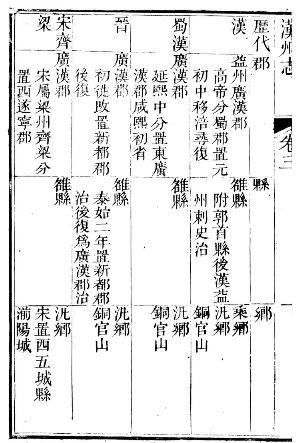 漢州志
卷三
歷代郡 縣 鄉
漢 益州廣漢郡 雒縣 乘鄉
高帝分蜀郡置元 附郭首縣後漢益 汎鄉
初中移涪尋復 州刺史治 銅官山
蜀漢廣漢郡 雒縣 汎鄉
延熙中分置東廣 銅官山
漢郡咸熙初省
晉 廣漢郡 雒縣 汎鄉
初徙改置新都郡 泰始二年置新都郡 銅官山
後復 治後復爲廣漢郡治
宋齊廣漢郡 雒縣 汎鄉
梁 宋屬梁州齊梁分 宋置西五城縣
置西遂寧郡 湔陽城